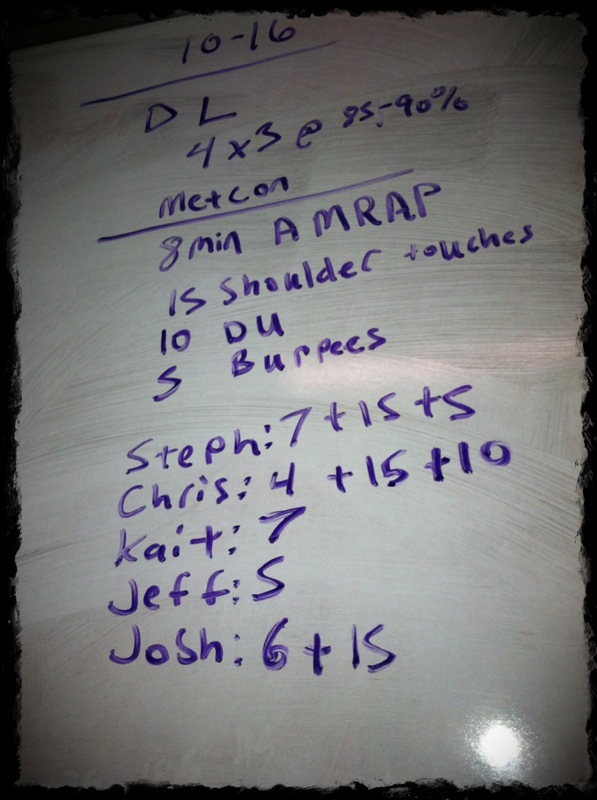 10-16
DL
4x3 @ 85-90%
Metcon
8min AMRAP
15 Shoulder touches
10 DU
5 Burpees
Steph: 7 + 15 + 5
Chris: 4 + 15 + 10
Kait: 7
Jeff: 5
Josh: 6 + 15